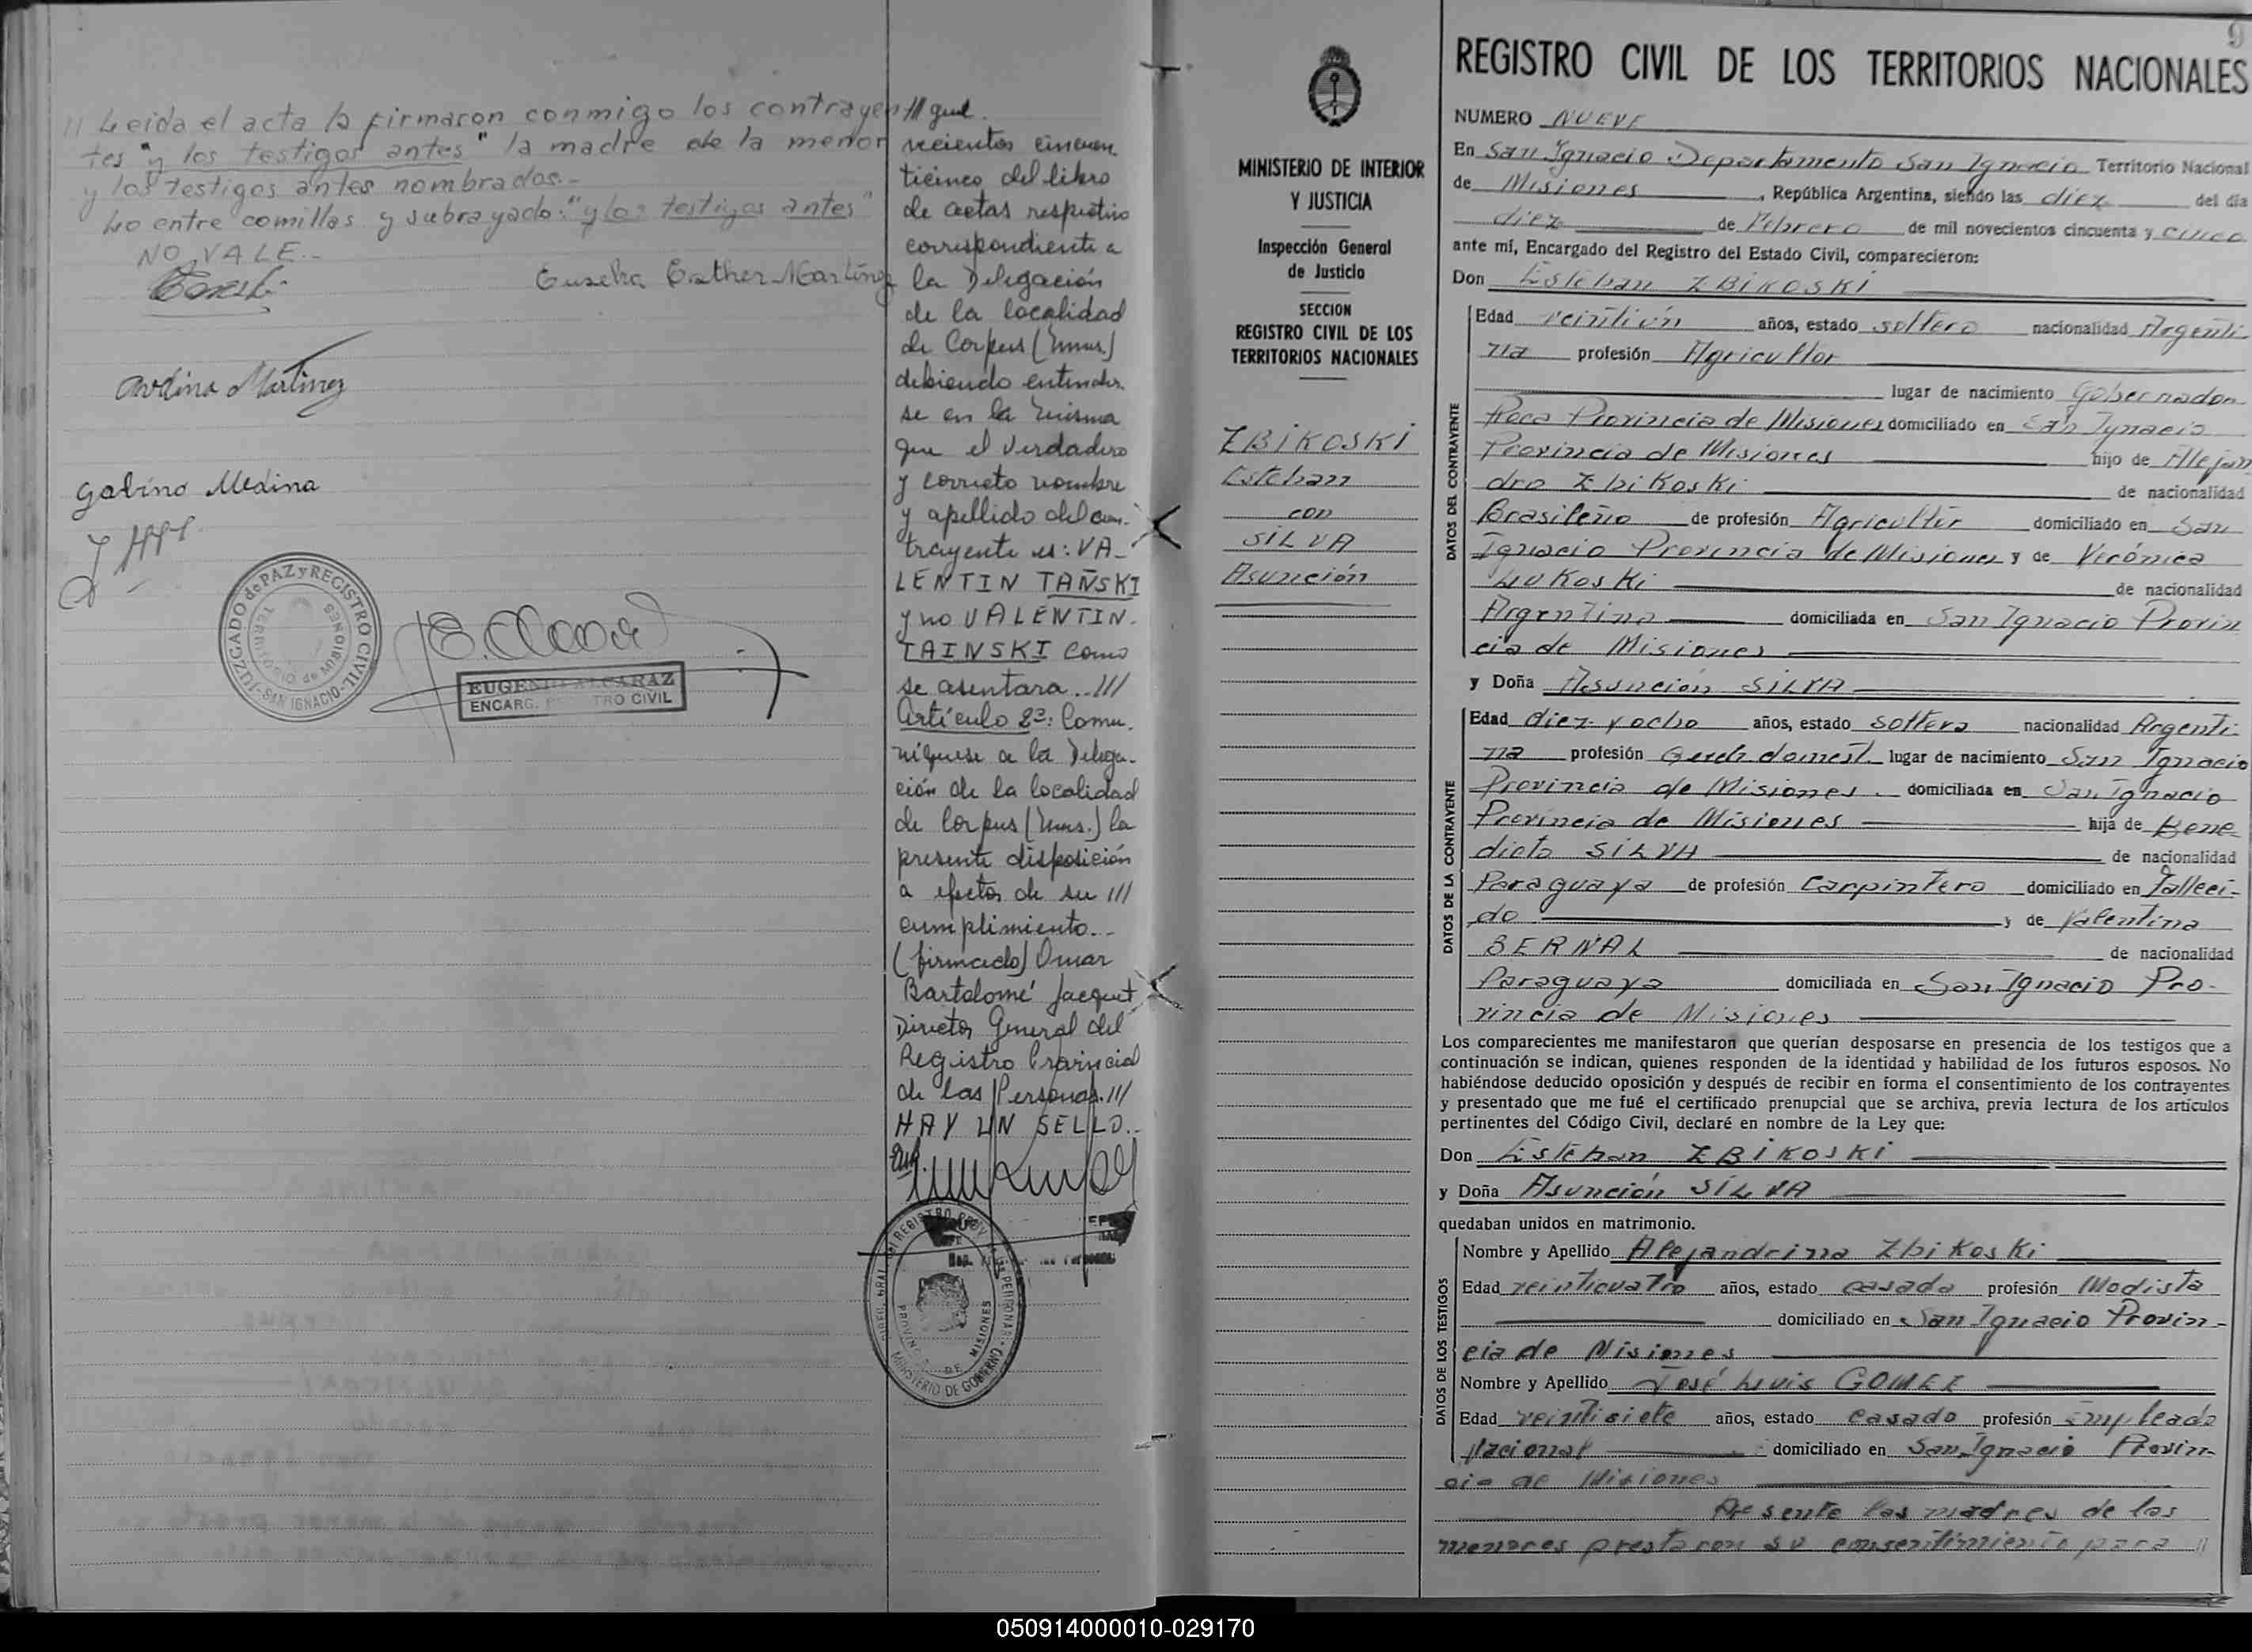 // Leida el acta la firmaron conmigo los contrayen
tes "y los testigos antes" la madre de la menor
y los testigos antes nombrados.-
Lo entre comillas y subrayado: "y los testigos antes"
NO VALE.-
Eusebia Esther Martínez
Martinez
Gabino Medina
JUZGADO de PAZ y REGISTRO CIVIL
SAN IGNACIO
TERRITORIO de MISIONES
EUGENIO ALCARAZ
ENCARG. TRO CIVIL
cientos cincuen
ticinco del libro
de actas respectivo
correspondiente a
la Delegación
de la localidad
de Corpus (Mnes.)
debiendo entender
se en la misma
que el verdadero
y correcto nombre
y apellido del con-
trayente es: VA-
LENTIN TAÑSKI
y no VALENTIN
TAINSKI como
se asentara..///
Artículo 2º: Comu-
níquese a la Delega-
ción de la localidad
de Corpus (Mnes.) la
presente disposición
a efectos de su ///
cumplimiento.-
(firmado) Omar
Bartolomé Jacquet
Director General del
Registro Provincial
de las Personas.///
HAY UN SELLO.-
MINISTERIO DE GOBIERNO
PROVINCIA DE MISIONES
MINISTERIO DE INTERIOR
Y JUSTICIA
Inspección General
de Justicia
SECCION
REGISTRO CIVIL DE LOS
TERRITORIOS NACIONALES
ZBIKOSKI
Esteban
con
SILVA
Asunción
9
REGISTRO CIVIL DE LOS TERRITORIOS NACIONALES
NUMERO NUEVE
En San Ignacio Departamento San Ignacio Territorio Nacional
de Misiones, República Argentina, siendo las diez del día
diez de Febrero de mil novecientos cincuenta y cinco
ante mí, Encargado del Registro del Estado Civil, comparecieron:
Don Esteban ZBIKOSKI
DATOS DEL CONTRAYENTE
Edad veintiún años, estado soltero nacionalidad Argenti-
na profesión Agricultor
lugar de nacimiento Gobernador
Roca Provincia de Misiones domiciliado en San Ignacio
Provincia de Misiones hijo de Alejan
dro Zbikoski de nacionalidad
Brasileño de profesión Agricultor domiciliado en San
Ignacio Provincia de Misiones y de Verónica
Lukoski de nacionalidad
Argentina domiciliada en San Ignacio Provin
cia de Misiones
y Doña Asunción SILVA
DATOS DE LA CONTRAYENTE
Edad diez y ocho años, estado soltera nacionalidad Argenti-
na profesión domést. lugar de nacimiento San Ignacio
Provincia de Misiones. domiciliada en San Ignacio
Provincia de Misiones hija de Bene
dicto SILVA de nacionalidad
Paraguaya de profesión Carpintero domiciliado en Falleci-
do y de Valentina
BERNAL de nacionalidad
Paraguaya domiciliada en San Ignacio Pro-
vincia de Misiones
Los comparecientes me manifestaron que querían desposarse en presencia de los testigos que a
continuación se indican, quienes responden de la identidad y habilidad de los futuros esposos. No
habiéndose deducido oposición y después de recibir en forma el consentimiento de los contrayentes
y presentado que me fué el certificado prenupcial que se archiva, previa lectura de los artículos
pertinentes del Código Civil, declaré en nombre de la Ley que:
Don Esteban ZBIKOSKI
y Doña Asunción SILVA
quedaban unidos en matrimonio.
DATOS DE LOS TESTIGOS
Nombre y Apellido Alejandrina Zbikoski
Edad veinticuatro años, estado casada profesión Modista
domiciliado en San Ignacio Provin-
cia de Misiones
Nombre y Apellido José Luis GOMEZ
Edad veintisiete años, estado casado profesión Empleado
Nacional domiciliado en San Ignacio Provin-
cia de Misiones
Presente las madres de los
menores prestaron su consentimiento para //
050914000010-029170